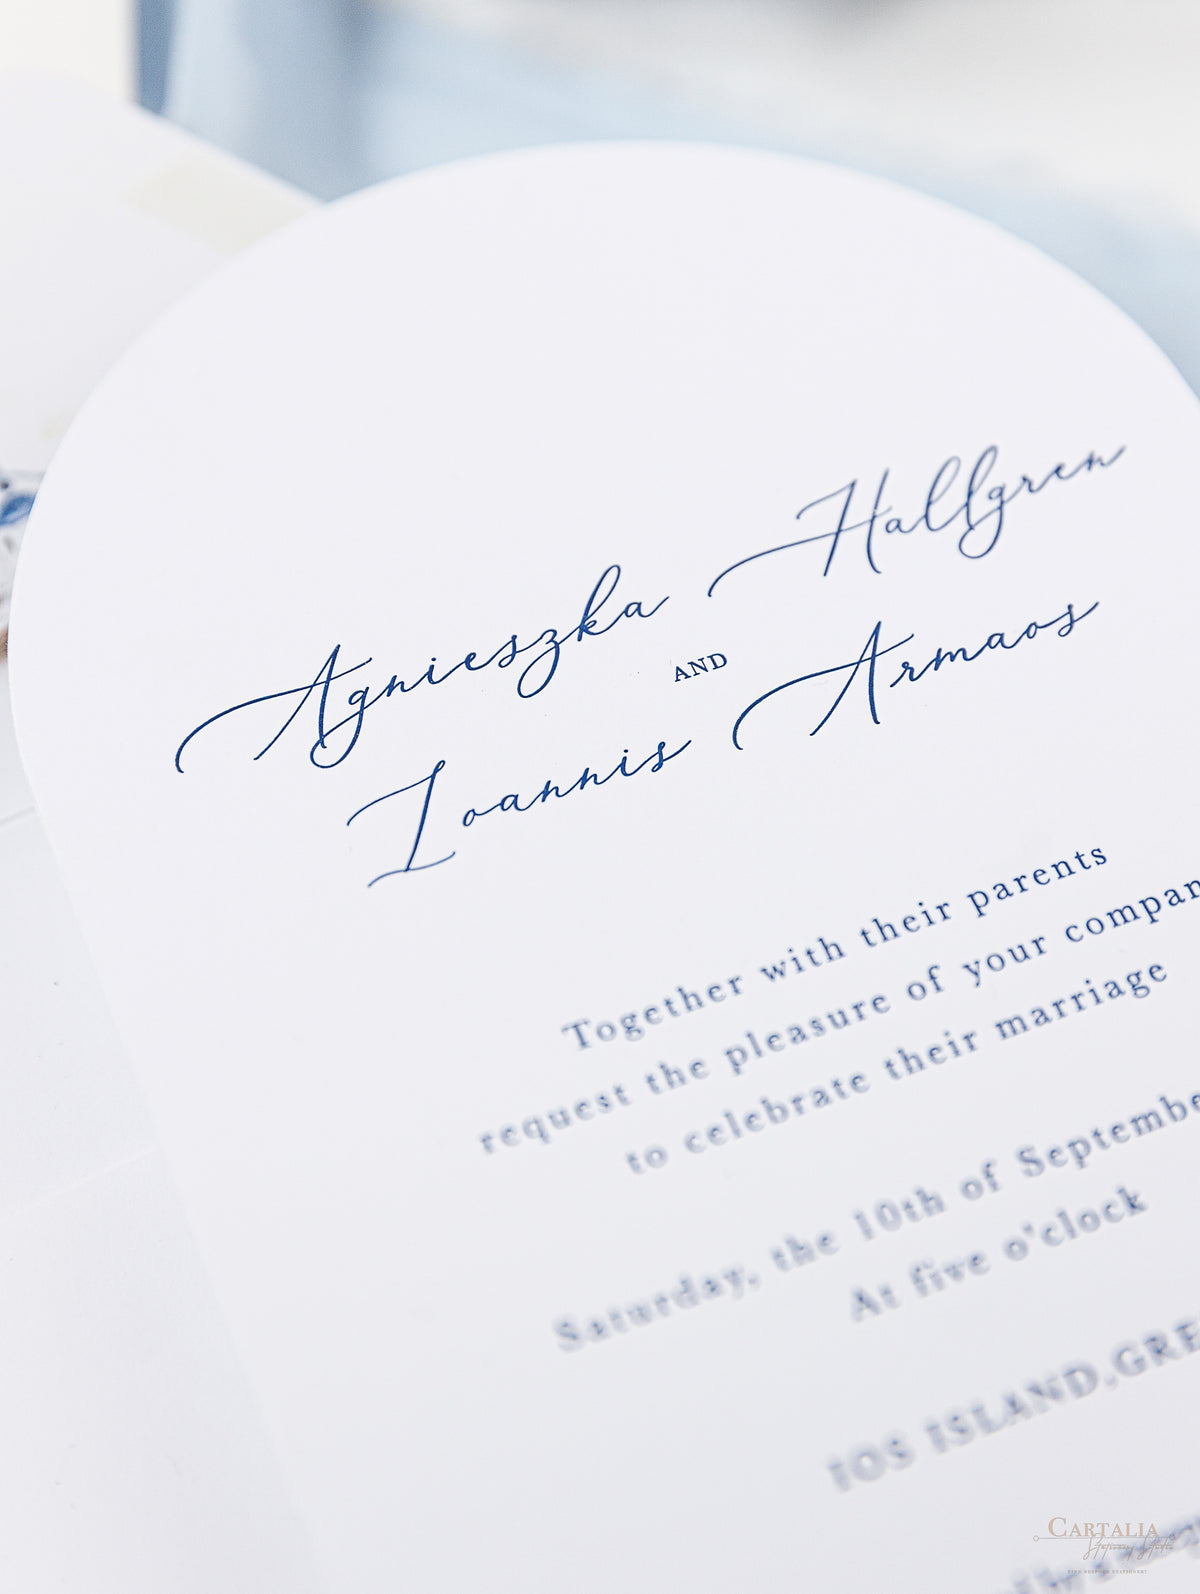 Agnieszka Hallgren
AND
Ioannis Armaos
Together with their parents
request the pleasure of your compan
to celebrate their marriage
Saturday, the 10th of Septembe
At five o'clock
IOS ISLAND, GRE
CARTALIA